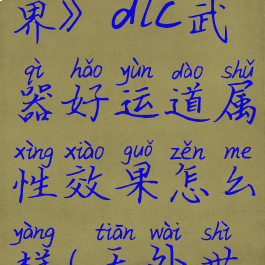 界》dlc武
qì hǎo yùn dào shǔ
器好运道属
xìng xiào guǒ zěn me
性效果怎么
yàng tiān wài shì
样(天外世